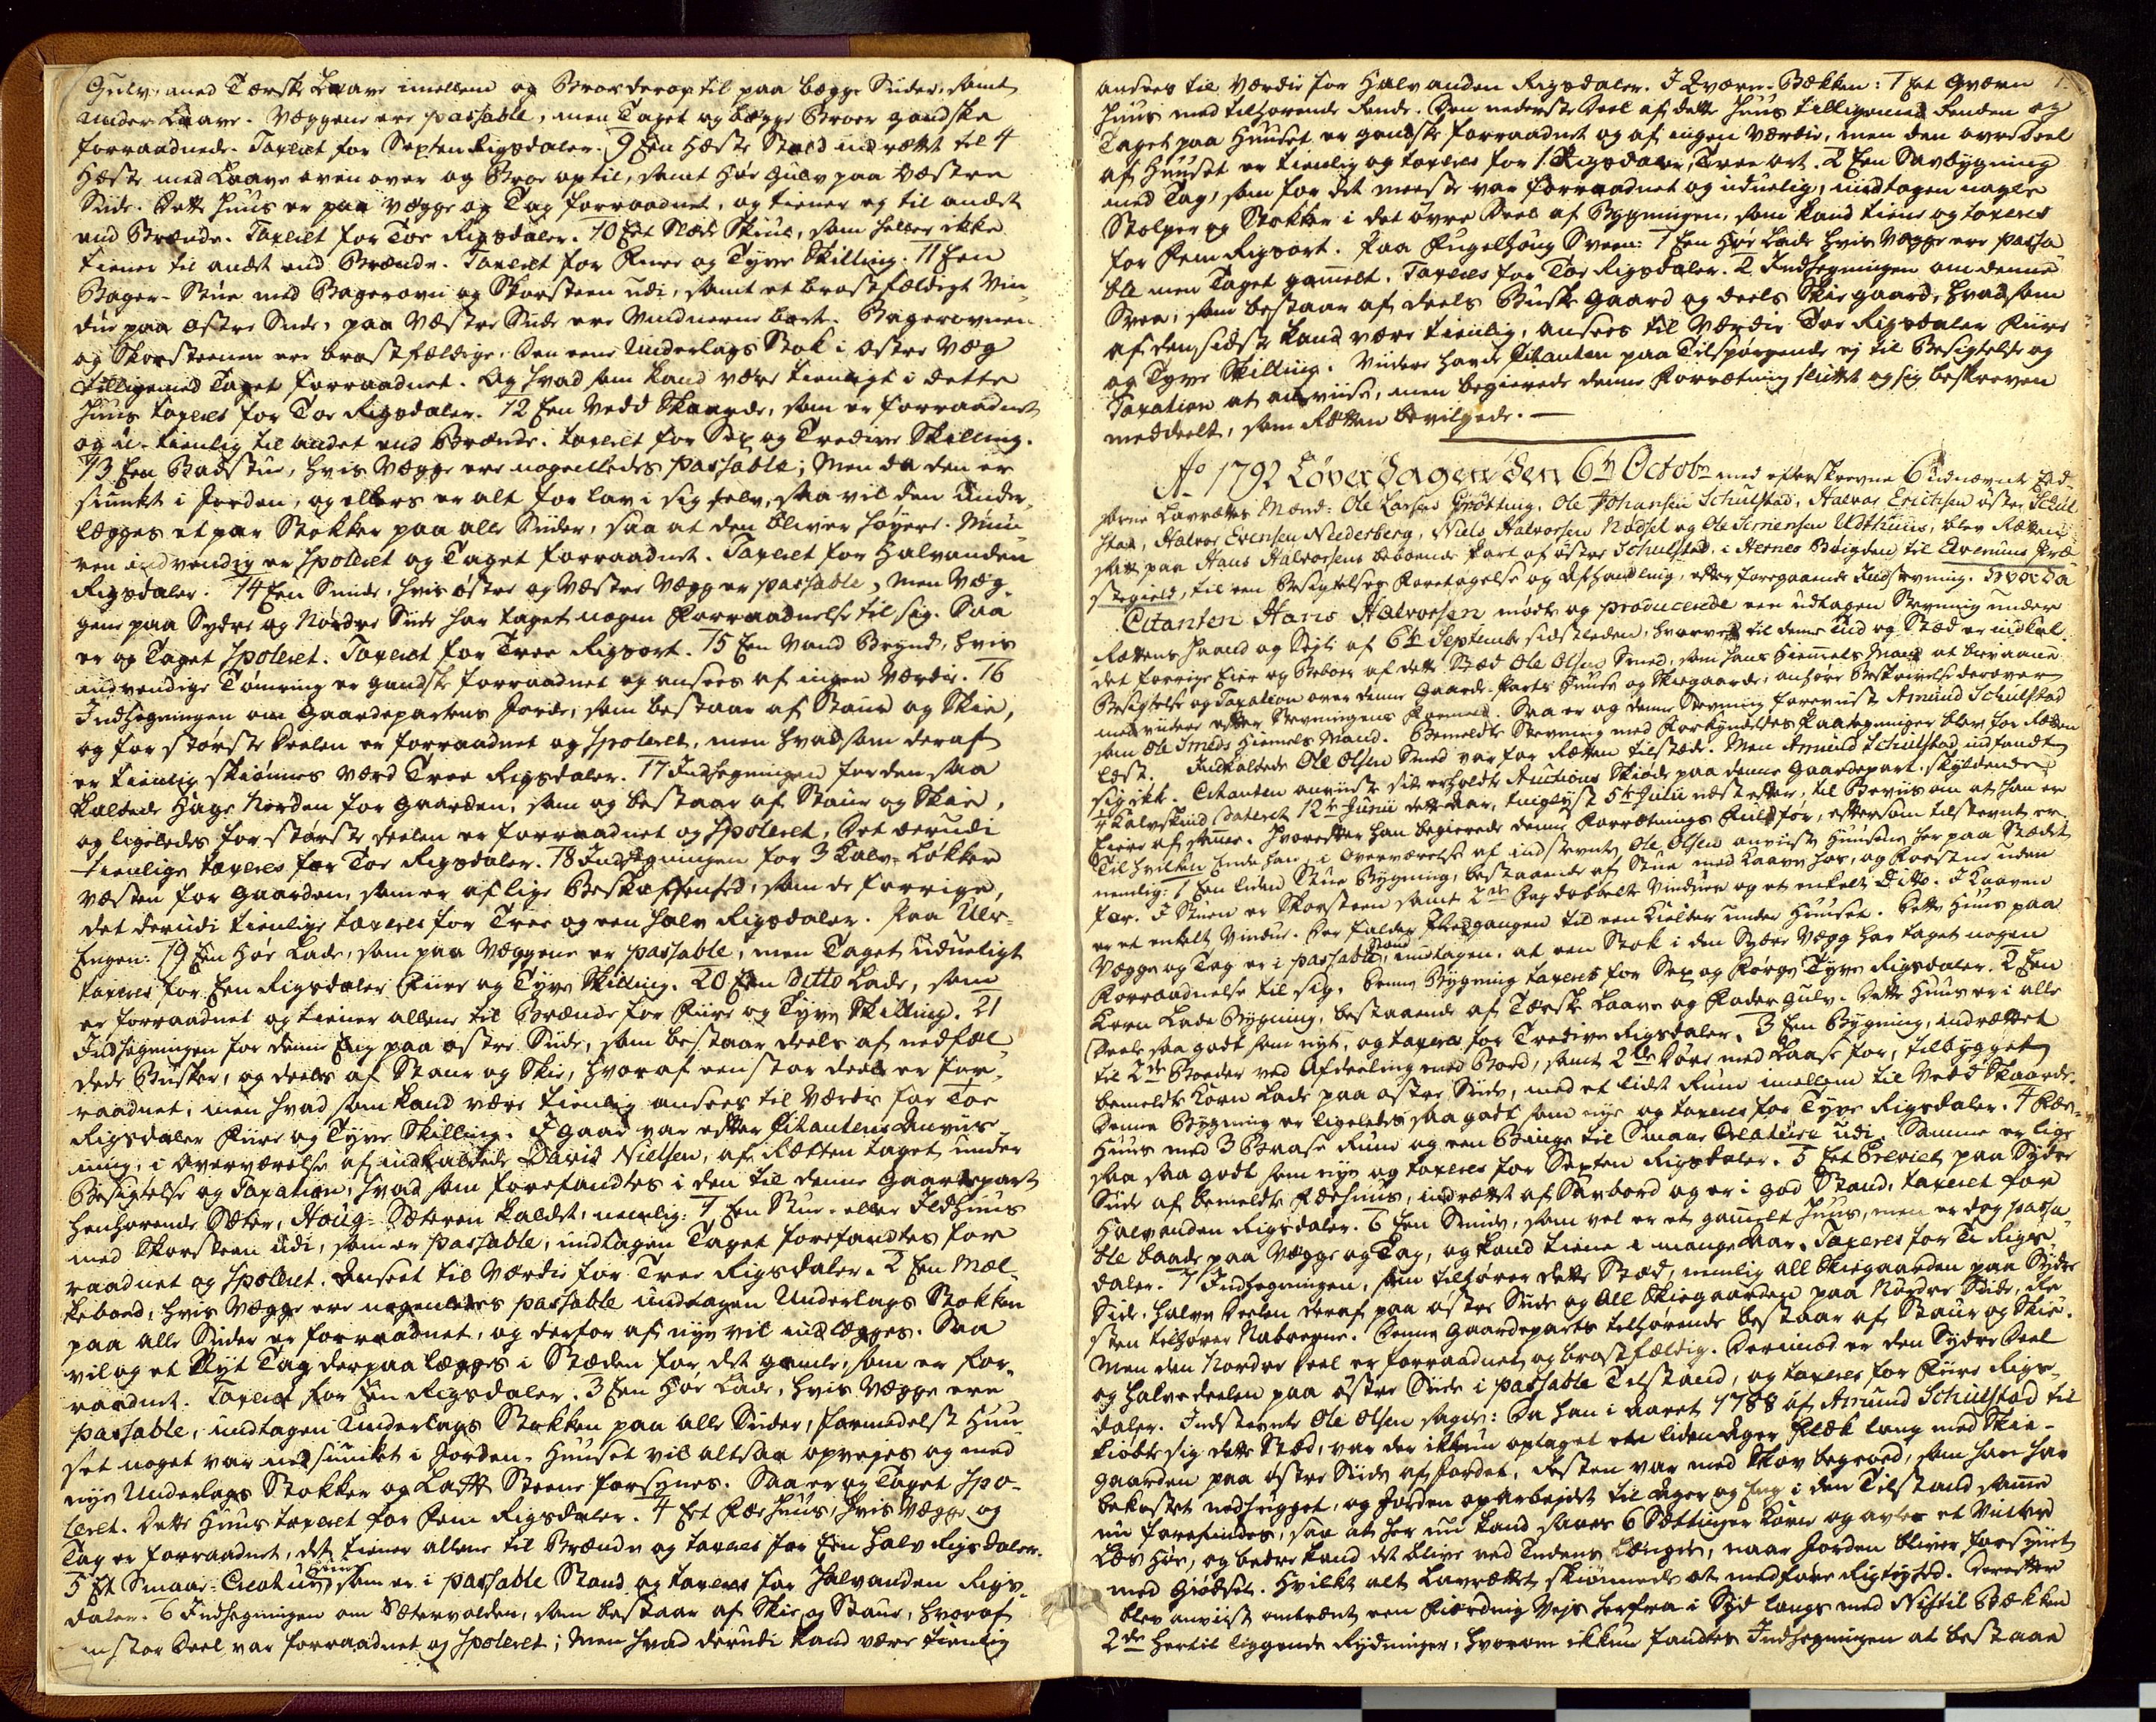 Gulv, med Tærske Laave imellem og Broe derop til paa begge Siider, samt
under Laave. Væggene ere passable, men Taget og begge Broer gandske
forraadnede. Taxeret for Septen Rigsdaler. 9 Een Hæste Stald indrættet til 4
Hæste med Laave oven over og Broe optil, samt Høe Gulv paa Væstre
Siide. Dette Huus er paa Vægge og Tag forraadnet, og tiener ej til andet
end Brænde. Taxeret for Toe Rigsdaler. 10 Eet Slæde Skiul, som heller ikke
tiener til andet end Brænde. Taxeret for Fiire og Tyve Skilling. 11 Een
Bager-Stue med Bagerovn og Skorsteen udi, samt et brøstfældigt Vin-
due paa østre Siide, paa Væstre Siide ere Vinduerne borte. Bagerovnen
og Skorsteenen ere brøstfældige. Den eene Underlags Stok i østre Væg
tilligemed Taget forraadnet. Og hvad som kand være tienligt i dette
Huus taxeres for Toe Rigsdaler. 12 Een Vedd Skaarde, som er forraadnet
og u-tienlig til andet end Brænde. taxeret for Sex og Tredive Skilling.
13 Een Badstue, hvis Vægge ere nogenledes passable; Men da den er
siunket i Jorden, og ellers er alt for lav i sig selv, saa vil den under-
lægges et par Stokker paa alle Siider, saa at den bliver høyere. Muu-
ren indvendig er spoleret og Taget forraadnet. Taxeret for Halvanden
Rigsdaler. 14 Een Smide, hvis østre og Væstre Vægg er passable, men Væg-
gene paa Sydre og Nordre Siide har taget nogen Forraadnelse til sig. Saa
er og Taget spoleret. Taxeret for Tree Rigsort. 15 Een Vand Brynd, hvis
indvendige Tømring er gandske forraadnet og ansees af ingen Værdie. 16
Indhegningen om Gaardepartens Jorde, som bestaar af Staur og Skie,
og for største Deelen er forraadnet og spoleret, men hvad som deraf
er tienlig skiønnes værd Tree Rigsdaler. 17 Indhegningen for den saa
kaldede Hage Norden for Gaarden, som og bestaar af Staur og Skie,
og ligeledes for største Deelen er forraadnet og spoleret, Det derudi
tienlige taxeres for Toe Rigsdaler. 18 Indhegningen for 3 Kalv-Løkker
Væsten for Gaarden, som er af lige Beskaffenhed, som de forrige,
det derudi tienlige taxeres for Tree og een halv Rigsdaler. Paa Ulv-
Engen: 19 Een Høe Lade, som paa Væggene er passable, men Taget udueligt
taxeres for Een Rigsdaler Fiire og Tyve Skilling. 20 Een Ditto Lade, som
er forraadnet og tiener allene til Brænde for Fiire og Tyve Skilling. 21
Indhegningen for denne Eng paa østre Siide, som bestaar deels af nedfæl-
dede Busker, og deels af Staur og Skie, hvoraf een stor deel er for-
raadnet, men hvad som kand være tienlig ansees til Værdie for Toe
Rigsdaler Fiire og Tyve Skilling. I Gaar var efter Citantens Anviis-
ning, i Overværelse af indkaldede David Nielsen, af Rætten taget under
Besigtelse og Taxation, hvad som forefandtes i den til denne Gaardepart
henhørende Sæter, Houg-Sæteren kaldet, nemlig: 1 Een Stue- eller Ildhuus
med Skorsteen udi, som er passable, undtagen Taget forefandtes for-
raadnet og spoleret. Anseet til Værdie for Tree Rigsdaler. 2 Een Mæl-
keboed, hvis Vægge ere nogenledes passable undtagen Underlags Stokken
paa alle Siider er forraadnet, og derfor af nye vil indlægges. Saa
vil og et Nyt Tag derpaa lægges i Stæden for det gamle, som er for-
raadnet. Taxeret for Een Rigsdaler. 3 Een Høe Lade, hvis Vægge ere
passable, undtagen Underlags Stokken paa alle Siider, formedelst Huu-
set noget var nedsiunket i Jorden. Huuset vil altsaa opvejes og med
nye Underlags Stokker og Laft Steene forsynes. Saa er og Taget spo-
leret. Dette Huus taxeret for Fem Rigsdaler. 4 Eet Fæe Huus, hvis Vægge og
Tag er forraadnet, det tiener allene til Brænde og taxeres for Een halv Rigsdaler.
5 Et Smaae-Creatur Huus, som er i passable Stand og taxeres for Halvanden Rigs-
daler. 6 Indhegningen om Sætervolden, som bestaar af Skie og Staur, hvoraf
een stor Deel var forraadnet og spoleret; Men hvad derudi kand være tienlig
ansees til Værdie for Halvanden Rigsdaler. I Qværn-Bækken: 1 Et Qværn
Huus med tilhørende Rende. Den nederste Deel af dette Huus tilligemed Renden og
Taget paa Huuset er gandske forraadnet og af ingen Værdie, men den øvre Deel
af Huuset er tienlig og taxeres for 1 Rigsdaler, Tree ort. 2 Een Savbygning
med Tag, som for det meeste var forraadnet og uduelig, undtagen nogle
Stolper og Stokker i det øvre Deel af Bygningen, som kand tiene og taxeres
for Fem Rigsort. Paa Fugelhoug Sveen: 1 Een Høe Lade hvis Vægge ere passa-
ble men Taget gamelt. Taxeres for Toe Rigsdaler. 2 Indhegningen om denne
Svee, som bestaar af deels Busk Gaard og deels Skie gaard, hvad som
af den sidste kand være tienlig, ansees til Værdie Toe Rigsdaler Fiire
og Tyve Skilling. Viidere havde Citanten paa Tilspørgende ej til Besigtelse og
Taxation at anviise, men begierede denne Forrætning sluttet og sig beskreven
meddeelt, som Rætten bevilgede.—
Ao 1792 Løverdagen den 6te Octobr med efterskrevne 6 udnævnte Eed-
sorne Lavrættes Mænd: Ole Larsen Grøtting, Ole Johansen Schulstad, Halvor Erichsen østre Schul-
stad, Halvor Evensen Nederberg, Niels Halvorsen Nødset og Ole Simensen Udthuus, blev Rætten
satt paa Hans Halvorsens beboende Part af østre Schulstad, i Hernes Bøigden til Elverums Præ-
stegield, til een Besigtelses Foretagelse og Afhandling, efter foregaaende Indstevning. Hvor da
Citanten Hans Halvorsen mødte og producerede een udtagen Stevning under
Rættens Haand og Segl af 6te Septembr sidstleden, hvorved til denne Tiid og Stæd er indkal-
det forrige Eier og Beboer af dette Stæd Ole Olsen Smed, som hans Hiemels Mand at bievaane
Besigtelse og Taxation over denne Gaarde-Parts Huuse og Skiegaarde, anhøre Beskrivelse derover
med viidere efter Stevningens Formeld. Saa er og denne Stevning foreviist Amund Schulstad
som Ole Smeds Hiemels Mand. Bemeldte Stevning med Forkyndelses Paategninger blev for Rætten
læst. Indkaldede Ole Olsen Smed var for Rætten tilstæde. Men Amund Schulstad indfandt
sig ikke. Citanten anviiste sit erholdte Auctions Skiøde paa denne Gaardepart skyldende
4 Kalvskind dateret 12te Junii dette Aar, tinglyst 5te Julii næstefter, til Beviis om at han er
Eier af samme. Hvorefter han begierede denne Forrætnings Fuldfør, eftersom tilstevnt er.
Til hvilken Ende han i Overværelse af indstevnte Ole Olsen anviiste Huusene her paa Stædet
nemlig: 1 Een liden Stue Bygning, bestaaende af Stue med Kaave hos, og Forstue uden
for. I Stuen er Skorsteen samt 2de Fag dobbelte Vinduer og et enkelt Ditto. I Kaaven
er et enkelt Vindue. Der falder Nedgangen til een Kielder under Huuset. Dette Huus paa
Vægge og Tag er i passable Stand, undtagen, at een Stok i den Sydre Vægg har taget nogen
Forraadnelse til sig. Denne Bygning taxeres for Sex og Førge Tyve Rigsdaler. 2 Een
Korn Lade Bygning, bestaaende af Tærske Laave og Foder Gulv. Dette Huus er i alle
Deele saa godt som nyt, og taxeres for Tredive Rigsdaler. 3 Een Bygning, indrættet
til 2de Boeder ved Afdeeling med Bord, samt 2de Døre med Laase for, tilbygget
bemeldte Korn Lade paa østre Siide, med et lidt Rum imellem til Vedd Skaarde.
Denne Bygning er ligeledes saa godt som nye og taxeres for Tyve Rigsdaler. 4 Fæe-
Huus med 3 Baase Rum og een Binge til Smaae Creature udi. Samme er lige-
saa saa godt som nye og taxeres for Septen Rigsdaler. 5 Eet Previet paa Sydre
Siide af bemeldte Fæehuus, indrættet af Savbord og er i god Stand, taxeret for
Halvanden Rigsdaler. 6 Een Smide, som vel er et gamelt Huus, men er dog passa-
ble baade paa Vægge og Tag, og kand tiene i mange Aar. Taxeres for Ti Rigs-
daler. 7 Indhegningen, som tilhører dette Stæd, nemlig all Skiegaarden paa Sydre
Siide, halve Deelen deraf paa østre Siide og all Skiegaarden paa Nordre Siide, Re-
sten tilhører Naboerne. Denne Gaardeparts tilhørende bestaar af Staur og Skie.
Men den Nordre Deel er forraadnet og brøstfældig. Derimod er den Sydre Deel
og halvedeelen paa østre Siide i passable Tilstand, og taxeres for Fiire Rigs-
daler. Indstevnte Ole Olsen sagde: Da han i Aaret 1788 af Amund Schulstad til-
kiøbte sig dette Stæd, var der ikkun optaget een liden Ager Flæk lang med Skie-
gaarden paa østre Siide af Jordet, Resten var med Skov begroed, som han har
bekostet nedhugget, og Jorden oparbejdet til Ager og Eng i den Tilstand samme
nu forefindes, saa at her nu kand saaes 6 Sættinger Korn og avles et Vinter
Læs Høe, og bedre kand det blive ved Tidens Længde, naar Jorden bliver forsynet
med Giødsel. Hvilket alt Lavrættet skiønnede at medføre Rigtighed. Derefter
blev anviist omtrent een Fierding Vejs herfra i Syd langs med Nistil Bækken
2de hertil liggende Rydninger, hvorom ikkun fandtes Indhegningen at bestaae